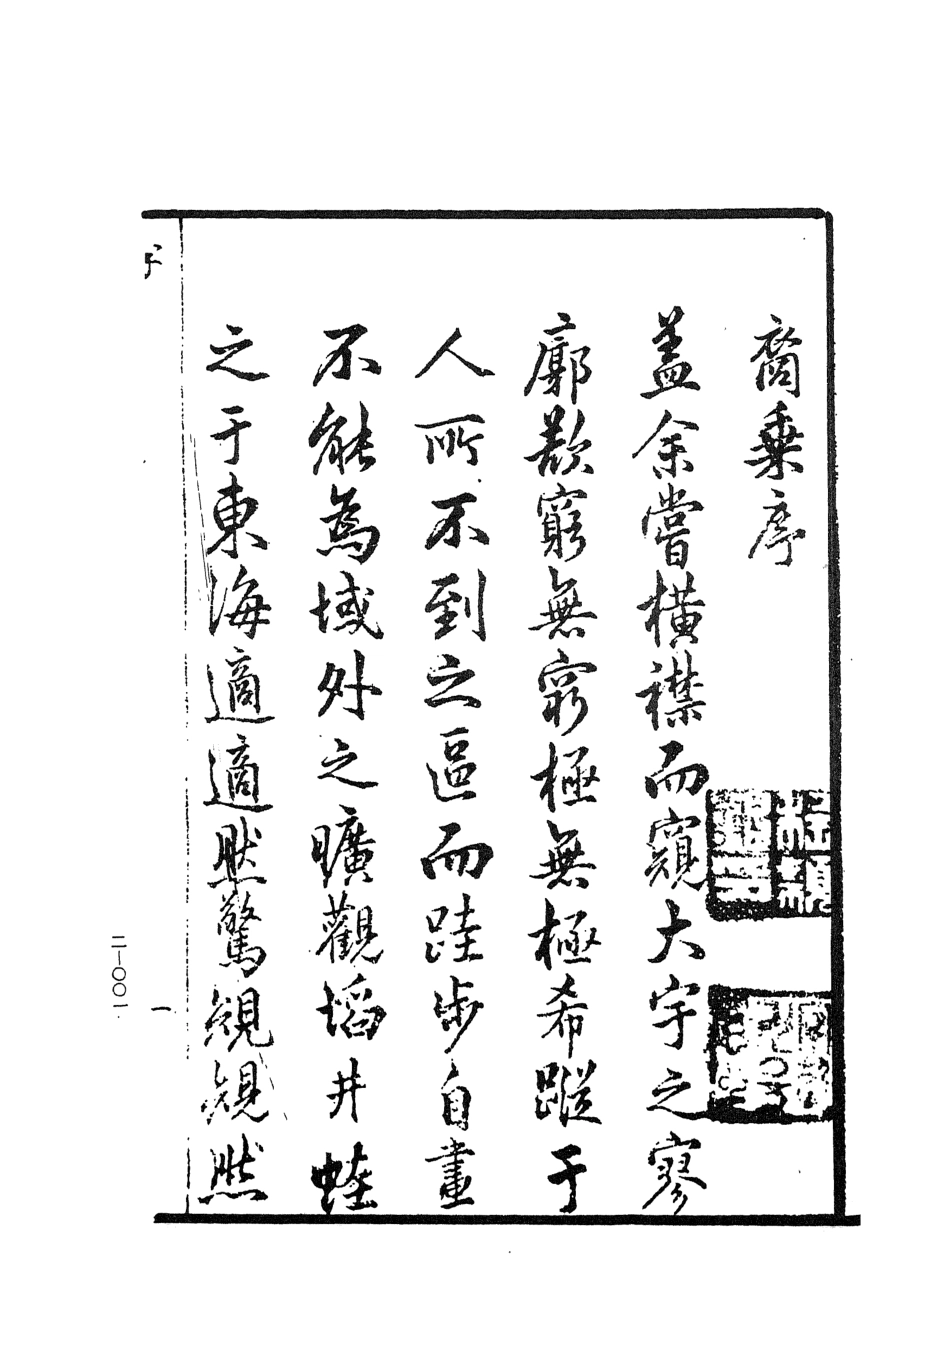 裔乘序
盖余嘗橫襟而窺大宇之寥
廓欵窮無窮極無極希蹤于
人所不到之區而跬步自畫
不能為域外之曠觀埳井蛙
之于東海適適然驚䂓䂓然
一
二—〇〇一